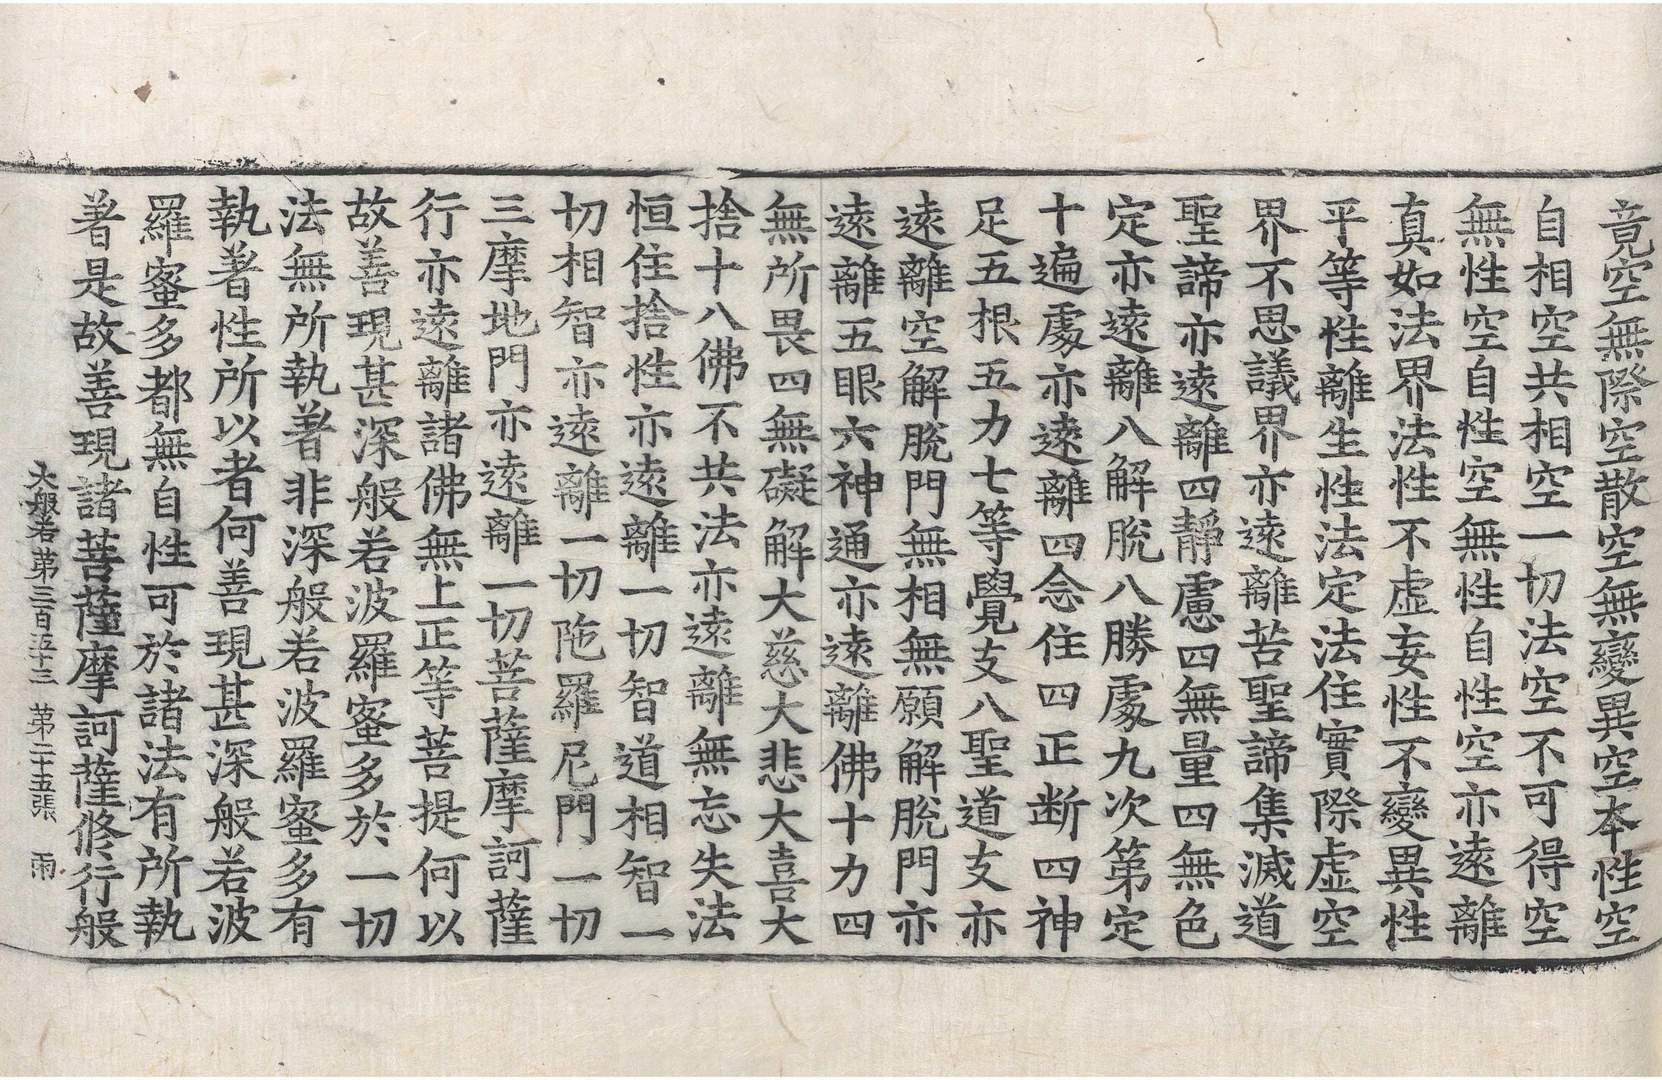 竟空無際空散空無變異空本性空
自相空共相空一切法空不可得空
無性空自性空無性自性空亦遠離
真如法界法性不虛妄性不變異性
平等性離生性法定法住實際虛空
界不思議界亦遠離苦聖諦集滅道
聖諦亦遠離四靜慮四無量四無色
定亦遠離八解脫八勝處九次第定
十遍處亦遠離四念住四正断四神
足五根五力七等覺支八聖道支亦
遠離空解脫門無相無願解脫門亦
遠離五眼六神通亦遠離佛十力四
無所畏四無礙解大慈大悲大喜大
捨十八佛不共法亦遠離無忘失法
恒住捨性亦遠離一切智道相智一
切相智亦遠離一切陁羅尼門一切
三摩地門亦遠離一切菩薩摩訶薩
行亦遠離諸佛無上正等菩提何以
故善現甚深般若波羅蜜多於一切
法無所執著非深般若波羅蜜多有
執著性所以者何善現甚深般若波
羅蜜多都無自性可於諸法有所執
著是故善現諸菩薩摩訶薩修行般
大般若第三百五十三 第二十五張 雨